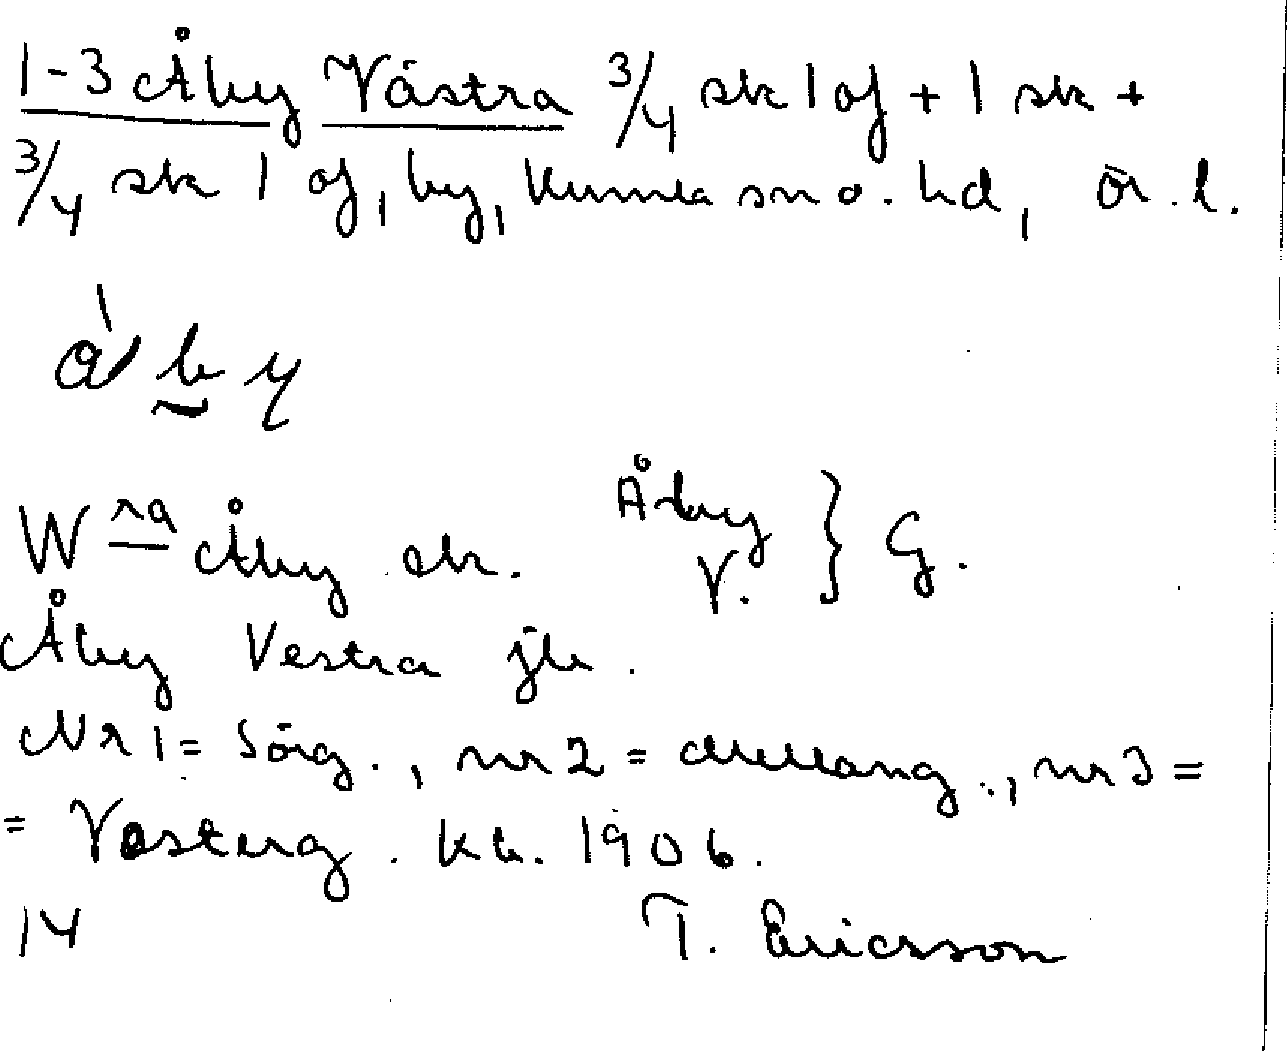 1-3 Åby Västra 3/4 sk 1 of + 1 sk +
3/4 sk 1 of, by, Kumla sn o. hd, Ör. l.
å̀ b y
W ra Åby ek. Åby V. } G.
Åby Vestra jb.
Nr 1 = Sörg., nr 2 = Mellang., nr 3 =
= Västerg. kb. 1906.
14 T. Ericsson